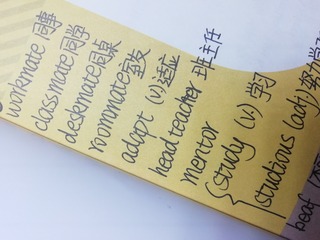 workmate 同事
classmate 同学
deskmate 同桌
roommate 室友
adapt (v) 适应
head teacher 班主任
mentor
study (v) 学习
studious (adj) 努力